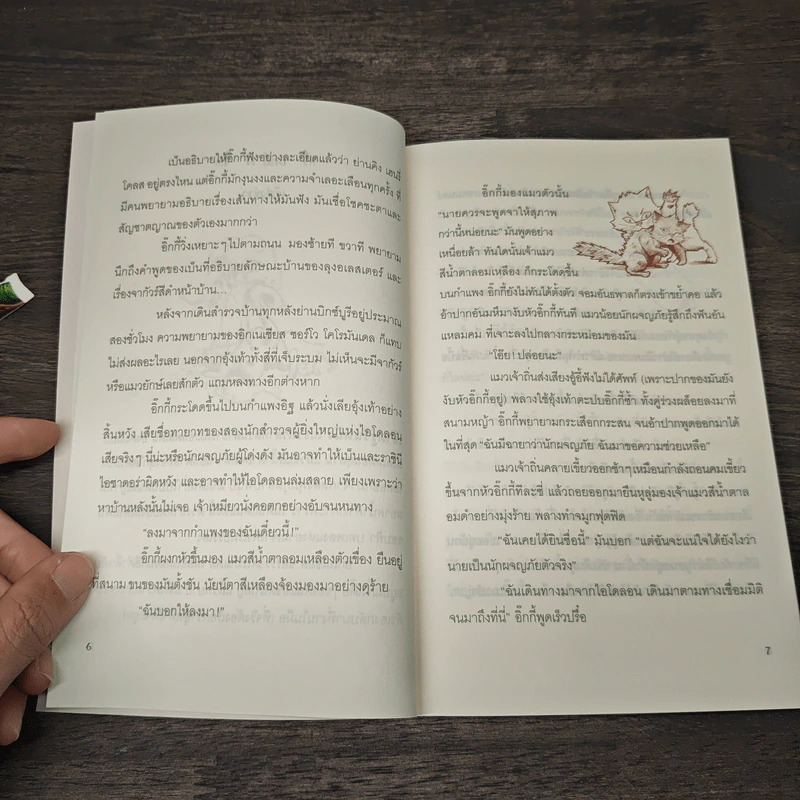 เบ็นอธิบายให้อิ๊กกี้ฟังอย่างละเอียดแล้วว่า ย่านคิง เฮนรี่
โคลส อยู่ตรงไหน แต่อิ๊กกี้มักงุนงงและความจำเลอะเลือนทุกครั้ง ที่
มีคนพยายามอธิบายเรื่องเส้นทางให้มันฟัง มันเชื่อโชคชะตาและ
สัญชาตญาณของตัวเองมากกว่า
อิ๊กกี้วิ่งเหยาะๆ ไปตามถนน มองซ้ายที ขวาที พยายาม
นึกถึงคำพูดของเบ็นที่อธิบายลักษณะบ้านของลุงอเลสเตอร์ และ
เรื่องจากัวร์สีดำหน้าบ้าน...
หลังจากเดินสำรวจบ้านทุกหลังย่านบิกซ์บูรีอยู่ประมาณ
สองชั่วโมง ความพยายามของอิกเนเชียส ซอร์โว โคโรมันเดล ก็แทบ
ไม่ส่งผลอะไรเลย นอกจากอุ้งเท้าทั้งสี่ที่เจ็บระบม ไม่เห็นจะมีจากัวร์
หรือแมวยักษ์เลยสักตัว แถมหลงทางอีกต่างหาก
อิ๊กกี้กระโดดขึ้นไปบนกำแพงอิฐ แล้วนั่งเลียอุ้งเท้าอย่าง
สิ้นหวัง เสียชื่อทายาทของสองนักสำรวจผู้ยิ่งใหญ่แห่งไอโดลอน
เสียจริงๆ นี่น่ะหรือนักผจญภัยผู้โด่งดัง มันอาจทำให้เบ็นและราชินี
ไอซาดอร่าผิดหวัง และอาจทำให้ไอโดลอนล่มสลาย เพียงเพราะว่า
หาบ้านหลังนั้นไม่เจอ เจ้าเหมียวนั่งคอตกอย่างอับจนหนทาง
“ลงมาจากกำแพงของฉันเดี๋ยวนี้!”
อิ๊กกี้ผงกหัวขึ้นมอง แมวสีน้ำตาลอมเหลืองตัวเขื่อง ยืนอยู่
ที่สนาม ขนของมันตั้งชัน นัยน์ตาสีเหลืองจ้องมองมาอย่างดุร้าย
“ฉันบอกให้ลงมา!”
6
อิ๊กกี้มองแมวตัวนั้น
“นายควรจะพูดจาให้สุภาพ
กว่านี้หน่อยนะ” มันพูดอย่าง
เหนื่อยล้า ทันใดนั้นเจ้าแมว
สีน้ำตาลอมเหลือง ก็กระโดดขึ้น
บนกำแพง อิ๊กกี้ยังไม่ทันได้ตั้งตัว จอมอันธพาลก็ตรงเข้าขย้ำคอ แล้ว
อ้าปากอันเหม็นมางับหัวอิ๊กกี้ทันที แมวน้อยนักผจญภัยรู้สึกถึงฟันอัน
แหลมคม ที่เจาะลงไปกลางกระหม่อมของมัน
“โอ๊ย! ปล่อยนะ”
แมวเจ้าถิ่นส่งเสียงอู้อี้ฟังไม่ได้ศัพท์ (เพราะปากของมันยัง
งับหัวอิ๊กกี้อยู่) พลางใช้อุ้งเท้าตะปบอิ๊กกี้ซ้ำ ทั้งคู่ร่วงผล็อยลงมาที่
สนามหญ้า อิ๊กกี้พยายามกระเสือกกระสน จนอ้าปากพูดออกมาได้
ในที่สุด “ฉันมีฉายาว่านักผจญภัย ฉันมาขอความช่วยเหลือ”
แมวเจ้าถิ่นคลายเขี้ยวออกช้าๆ เหมือนกำลังถอนคมเขี้ยว
ขึ้นจากหัวอิ๊กกี้ทีละซี่ แล้วถอยออกมายืนหลู่มองเจ้าแมวสีน้ำตาล
อมดำอย่างมุ่งร้าย พลางทำจมูกฟุดฟิด
“ฉันเคยได้ยินชื่อนี้” มันบอก “แต่ฉันจะแน่ใจได้ยังไงว่า
นายเป็นนักผจญภัยตัวจริง”
“ฉันเดินทางมาจากไอโดลอน เดินมาตามทางเชื่อมมิติ
จนมาถึงที่นี่” อิ๊กกี้พูดเร็วปรื๋อ
7